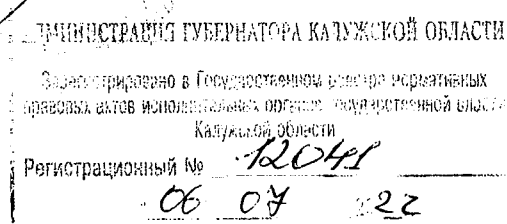 АДМИНИСТРАЦИЯ ГУБЕРНАТОРА КАЛУЖСКОЙ ОБЛАСТИ
Зарегистрировано в Государственном реестре нормативных
правовых актов исполнительных органов государственной власти
Калужской области
Регистрационный № 12041
06 07 22